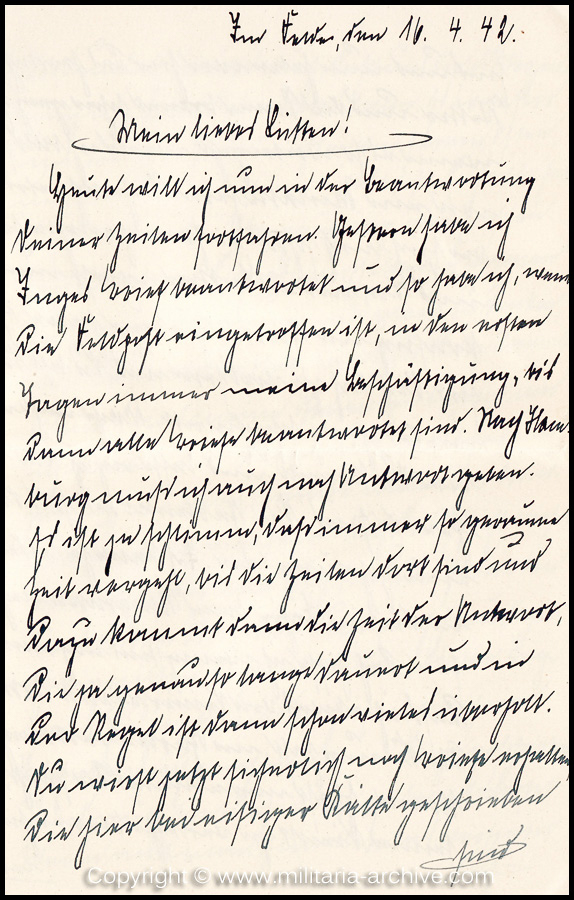 Im Felde, den 16. 4. 42.
Mein liebes Lütten!
Heute will ich nun in der Beantwortung
Deiner Zeilen fortfahren. Gestern habe ich
Inges Brief beantwortet und so habe ich, wenn
die Feldpost eingetroffen ist, in den ersten
Tagen immer meine Beschäftigung, bis
dann alle Briefe beantwortet sind. Nach Ham-
burg muß ich auch noch Antwort geben.
Es ist ja schlimm, daß immer so geraume
Zeit vergeht, bis die Zeilen dort sind und
dazu kommt dann die Zeit der Antwort,
die ja genau so lange dauert und in
der Regel ist dann schon vieles überholt.
Du wirst jetzt sicherlich noch Briefe erhalten,
die hier bei eisiger Kälte geschrieben
sind
Copyright © www.militaria-archive.com